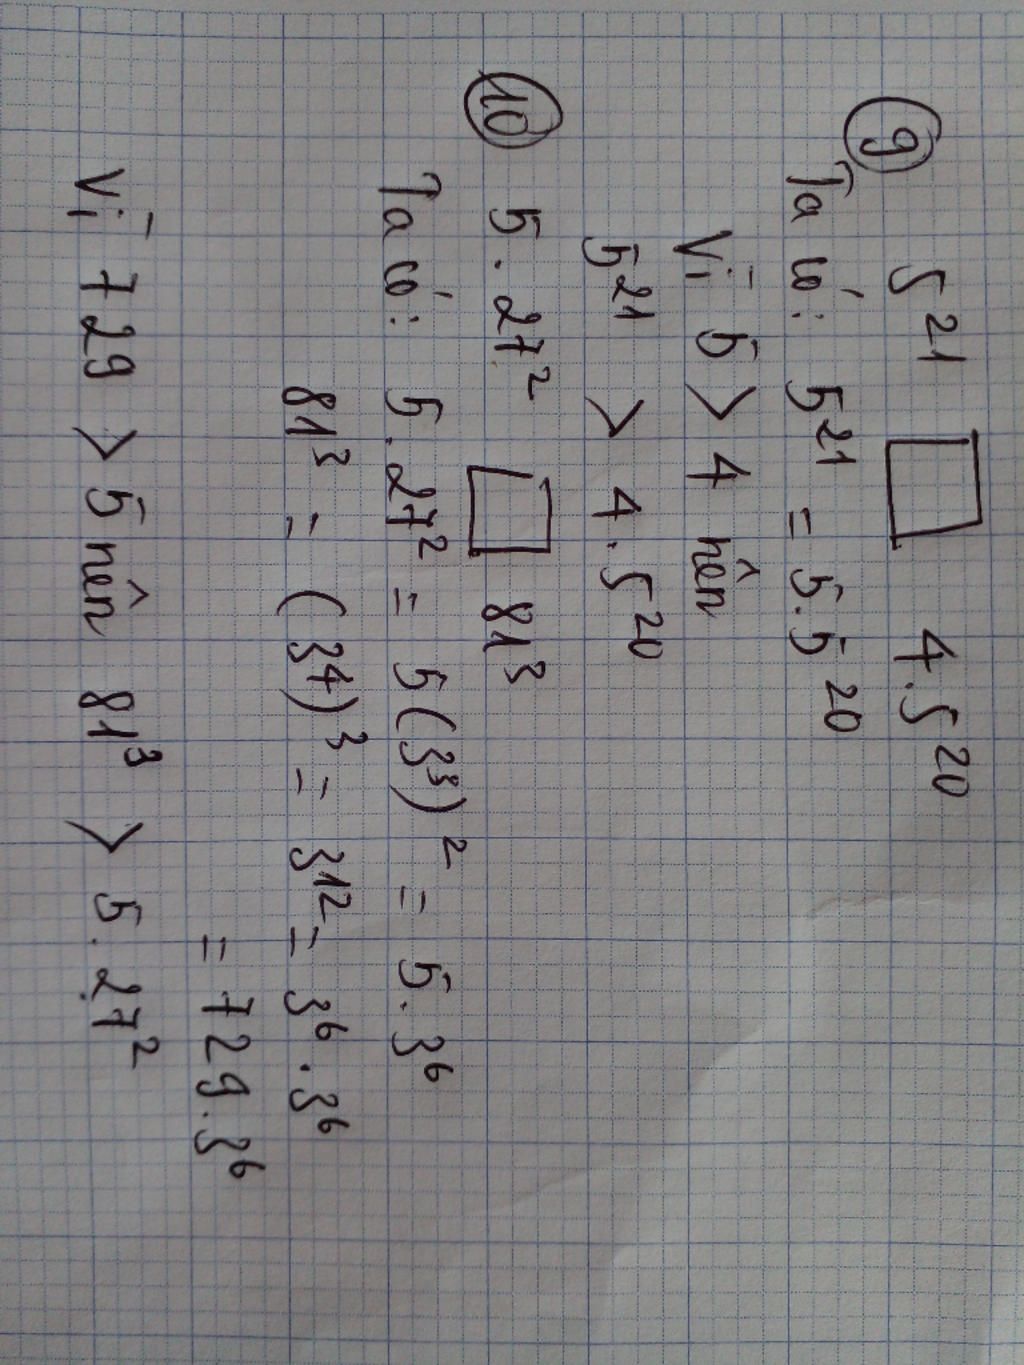 9 5²¹ □ 4.5²⁰
Ta có: 5²¹ = 5.5²⁰
Vì 5 > 4 nên
5²¹ > 4.5²⁰
10 5.27² □ 81³
Ta có: 5.27² = 5(3³)² = 5.3⁶
81³ = (3⁴)³ = 3¹² = 3⁶.3⁶
= 729.3⁶
Vì 729 > 5 nên 81³ > 5.27²